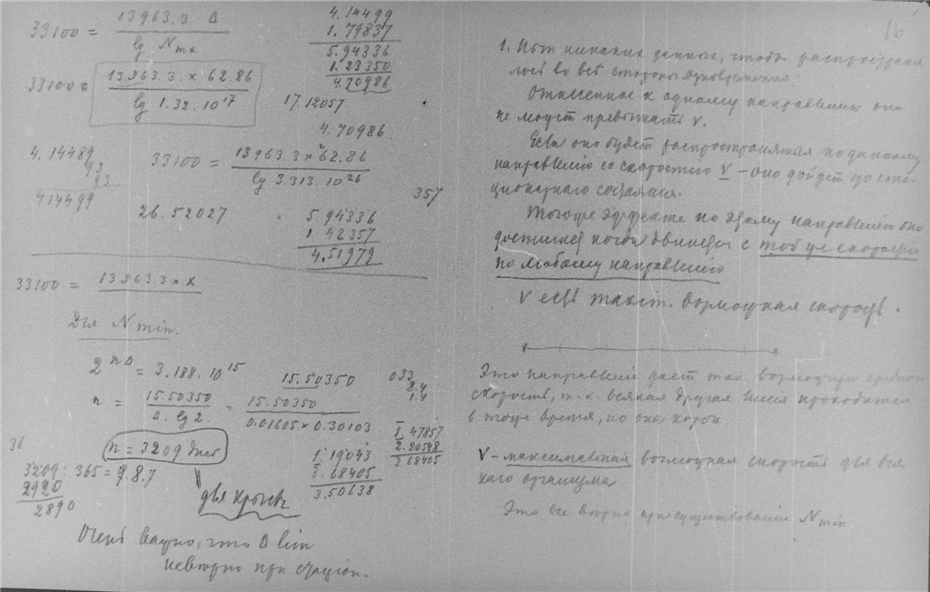 33100 = 13963.3 Δ
lg N mx
4.14499
1.79837
5.94336
1.23350
4.70986
33100 = 13963.3 × 62.86
lg 1.32. 10¹⁷
17.12057
4.70986.
4.14489
93
93
414499
33100 = 13963.3 × 62.86
lg 3.313. 10²⁶
357
26.52027
5.94336
1.42357
4.51979
33100 = 13963.3 × K
Для N min.
2ⁿᐩ = 3.188. 10¹⁵
n = 15.50350
Δ. lg 2.
= 15.50350
15.50350
0.01605 × 0.30103
033
2.4
1.4
n = 3209 дней
1.47857
2.20548
3.68405
1.19043
3.68405
3.50638
36
3209 : 365 = 9.8.7
2920
2890
для крысы
Очень важно, что Δ lim
неверно при стацион.
16
1. Нет никаких данных, чтобы
во все стороны одновременно.
Отнесенное к одному направлению оно
не может превышать V.
Если оно будет распространяться по данному
направлению со скоростью V – оно дойдет до ста-
ционарного состояния.
Того же эффекта по этому направлению оно
достигнет когда двинется с той же скоростью
по любому направлению
V есть макс. возможная скорость.
Это направление даст мак. возможную
скорость, т. к. всякая другая линия проходится
в то же время, но она короче.
V – максимальная возможная скорость для вся-
кого организма
Это все верно при существовании N min